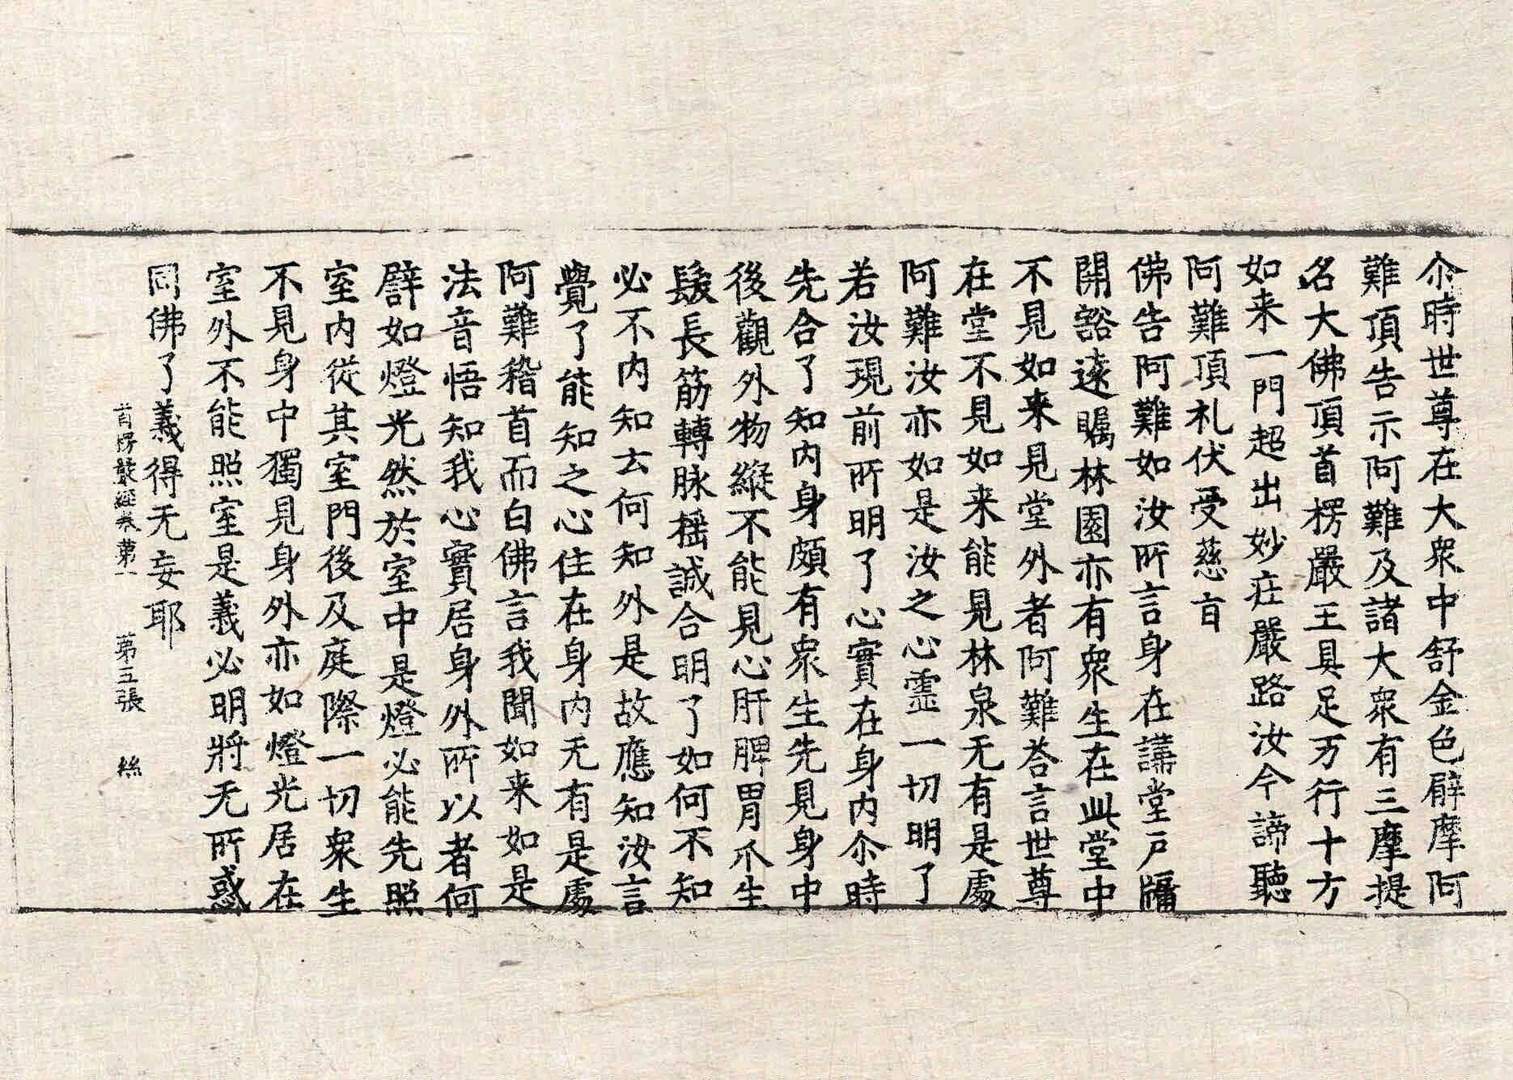 尒時世尊在大衆中舒金色臂摩阿
難頂告示阿難及諸大衆有三摩提
名大佛頂首楞嚴王具足万行十方
如来一門超出妙庄嚴路汝今諦聽
阿難頂札伏受慈㫖
佛告阿難如汝所言身在講堂戸牖
開豁遠矚林園亦有衆生在此堂中
不見如来見堂外者阿難荅言世尊
在堂不見如来能見林泉无有是處
阿難汝亦如是汝之心霊一切明了
若汝現前所明了心實在身内尒時
先合了知内身頗有衆生先見身中
後觀外物縱不能見心肝脾胃爪生
髮長筋轉脉摇誠合明了如何不知
必不内知云何知外是故應知汝言
覺了能知之心住在身内无有是處
阿難稽首而白佛言我聞如来如是
法音悟知我心實居身外所以者何
譬如燈光然於室中是燈必能先照
室内從其室門後及庭際一切衆生
不見身中獨見身外亦如燈光居在
室外不能照室是義必明將无所惑
同佛了義得无妄耶
首楞嚴經卷第一　第五張　絲